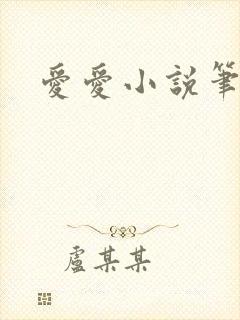 愛愛小說筆
盧某某